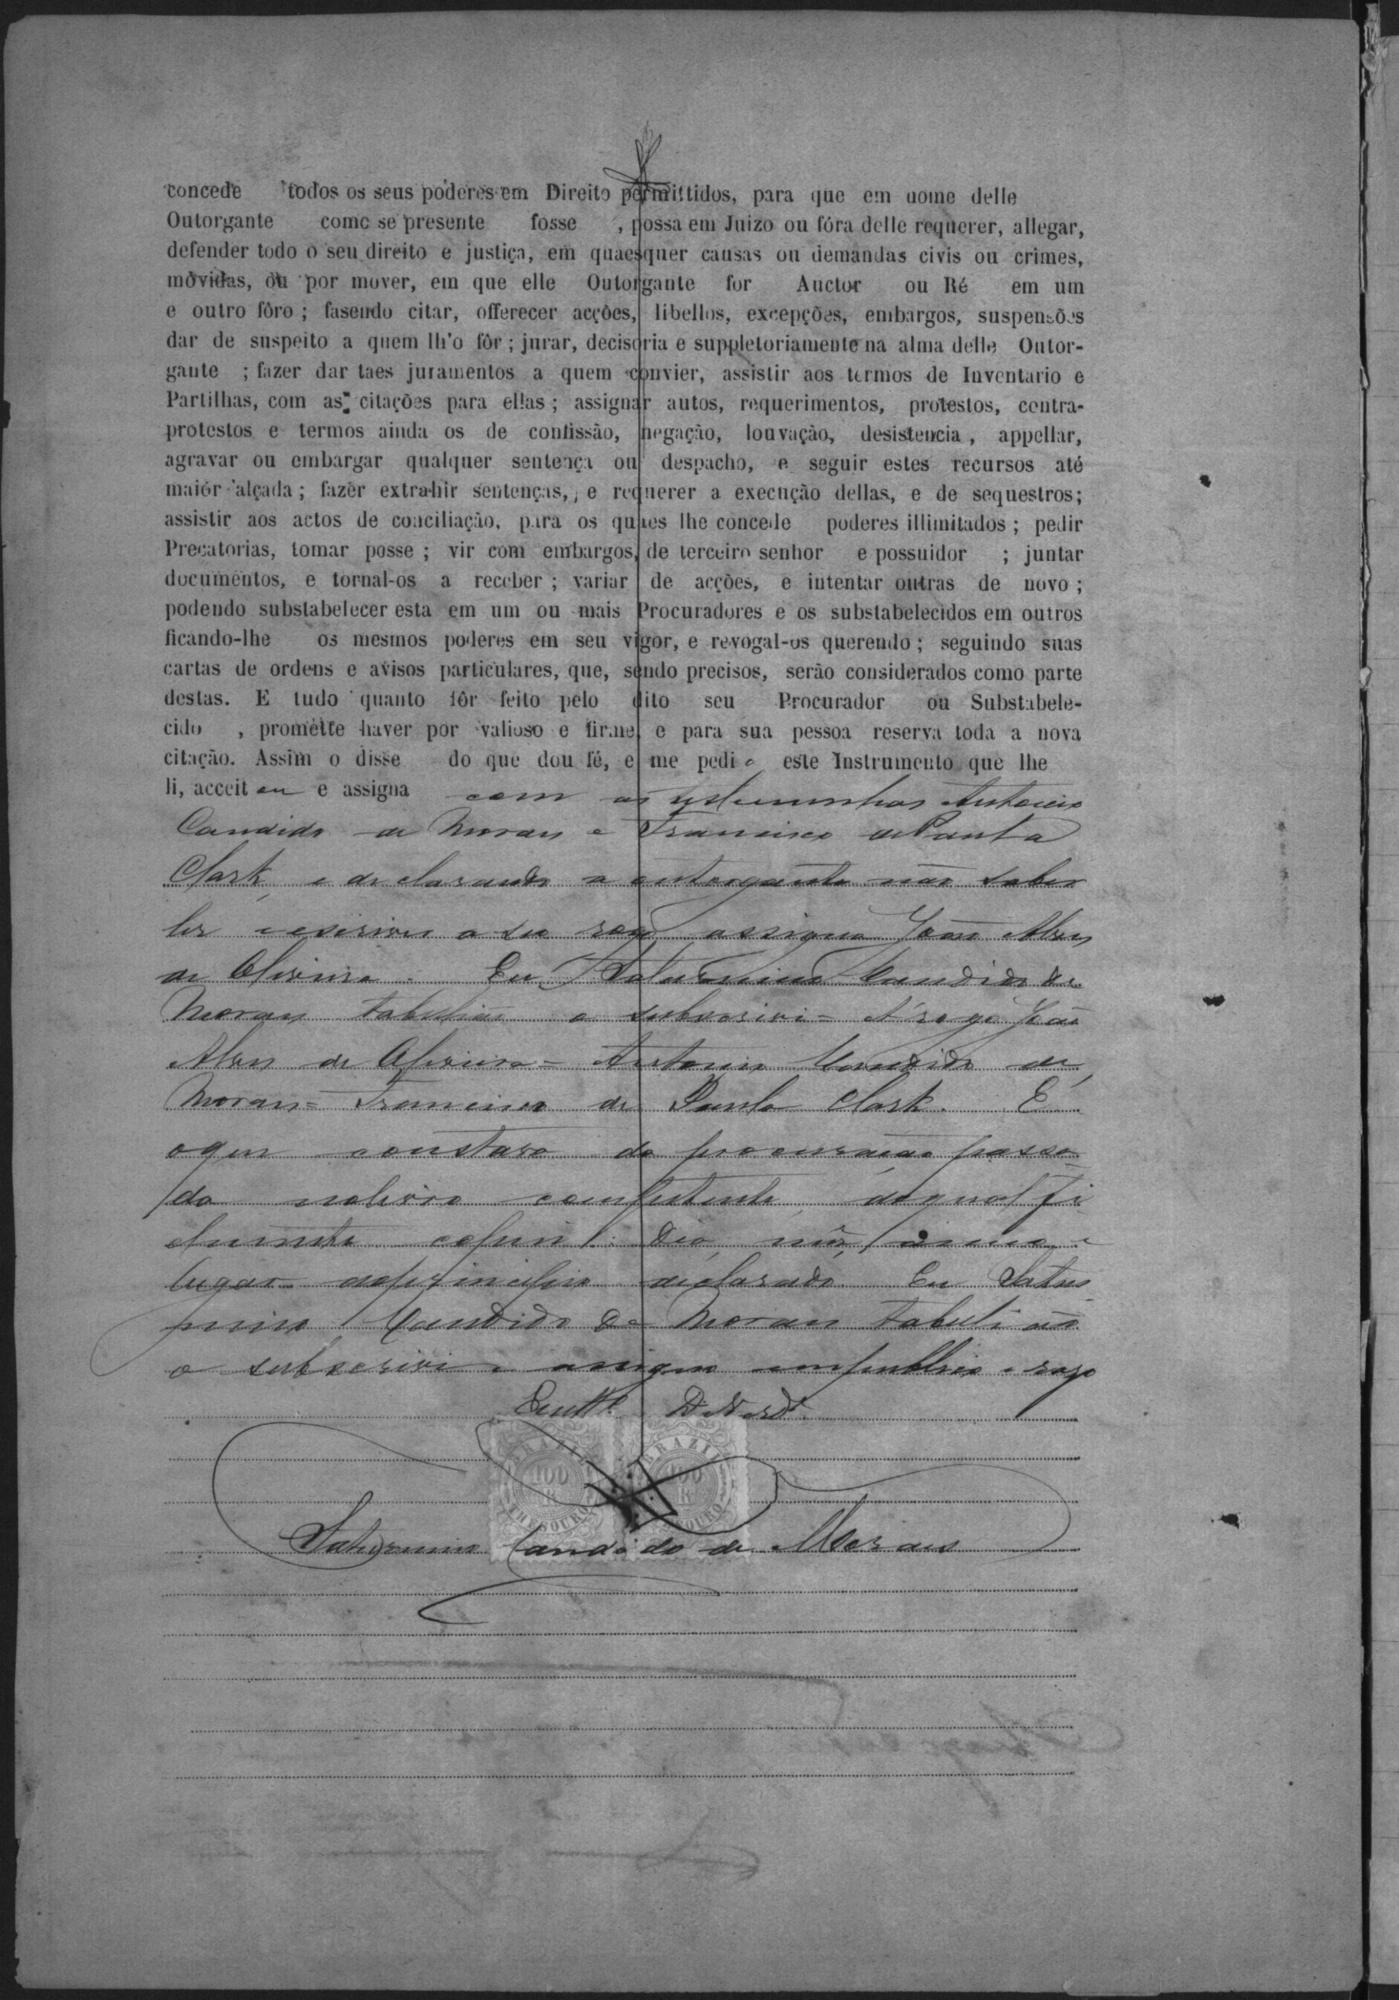 concede todos os seus poderes em Direito permittidos, para que em nome delle
Outorgante como se presente fosse , possa em Juizo ou fóra delle requerer, allegar,
defender todo o seu direito e justiça, em quaesquer causas ou demandas civis ou crimes,
movidas, ou por mover, em que elle Outorgante for Auctor ou Ré em um
e outro fôro ; fasendo citar, offerecer acções, libellos, excepções, embargos, suspensões
dar de suspeito a quem lh'o fôr ; jurar, decisoria e suppletoriamente na alma delle Outor-
gante ; fazer dar taes juramentos a quem convier, assistir aos termos de Inventario e
Partilhas, com as citações para ellas ; assignar autos, requerimentos, protestos, contra-
protestos e termos ainda os de confissão, negação, louvação, desistencia , appellar,
agravar ou embargar qualquer sentença ou despacho, e seguir estes recursos até
maiór alçada ; fazer extrahir sentenças, e requerer a execução dellas, e de sequestros;
assistir aos actos de conciliação, para os quaes lhe concede poderes illimitados ; pedir
Precatorias, tomar posse ; vir com embargos, de terceiro senhor e possuidor ; juntar
documentos, e tornal-os a receber ; variar de acções, e intentar outras de novo ;
podendo substabelecer esta em um ou mais Procuradores e os substabelecidos em outros
ficando-lhe os mesmos poderes em seu vigor, e revogal-os querendo ; seguindo suas
cartas de ordens e avisos particulares, que, sendo precisos, serão considerados como parte
destas. E tudo quanto fôr feito pelo dito seu Procurador ou Substabele-
cido , promette haver por valioso e firme, e para sua pessoa reserva toda a nova
citação. Assim o disse do que dou fé, e me pedi o este Instrumento que lhe
li, acceit ou e assigna com as testemunhas Antonio
Candido de Moraes e Francisco de Paula
Clark, e declarando a outorgante não saber
ler e escrever a seu rogo assigna João Alves
de Oliveira. Eu, Saturnino Candido de
Moraes tabellião o subscrevi = A'rogo João
Alves de Oliveira = Antonio Candido de
Moraes = Francisco de Paula Clark. É
o que constava da procuração passa-
da no livro competente, do qual fi-
elmente copiei. Dia, mez, anno e
lugar do principio declarado. Eu Satur
nino Candido de Moraes tabellião
o subscrevi e assigno em publico e raso
BRAZIL
100
R
THESOURO
BRAZIL
100
R
THESOURO
Saturnino Candido de Moraes